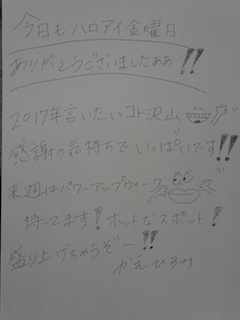 今日もハロアイ金曜日
ありがとうございましたぁぁ!!
2017年言いたいコト沢山
感謝の気持ちでいっぱいです!!
来週はパワーアップウィーク
待ってます!ホットなスポット!
盛り上げちゃうぞー!!
かえひろみ